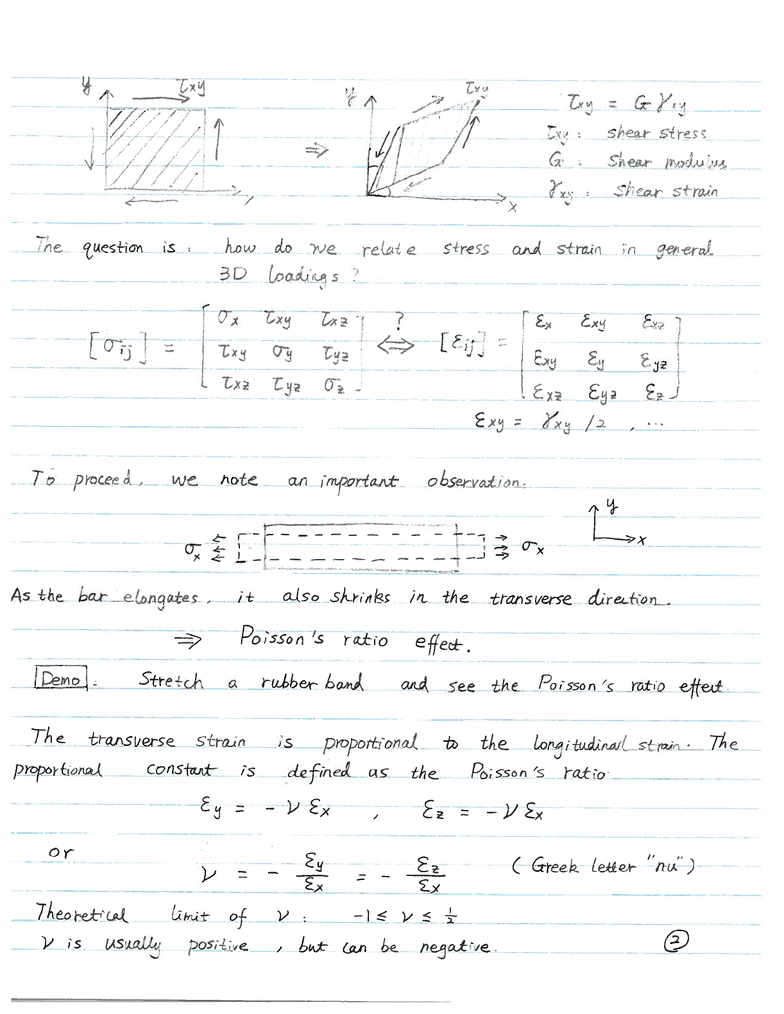 y τxy y τxy τxy = G γxy
τxy : shear stress
G : Shear modulus
⇒ γxy : Shear strain
x
The question is : how do we relate stress and strain in general
3D loadings ?
[σij] = [ σx τxy τxz ? [εij] = [ εx εxy εxz
τxy σy τyz ⇔ εxy εy εyz
τxz τyz σz ] εxz εyz εz ]
εxy = γxy /2 , ...
To proceed, we note an important observation.
y
σx σx x
As the bar elongates, it also shrinks in the transverse direction.
⇒ Poisson's ratio effect.
Demo. Stretch a rubber band and see the Poisson's ratio effect
The transverse strain is proportional to the longitudinal strain. The
proportional constant is defined as the Poisson's ratio
εy = - ν εx , εz = - ν εx
or ν = - εy/εx = - εz/εx (Greek letter "nu")
Theoretical limit of ν : -1 ≤ ν ≤ 1/2
ν is usually positive , but can be negative. 2